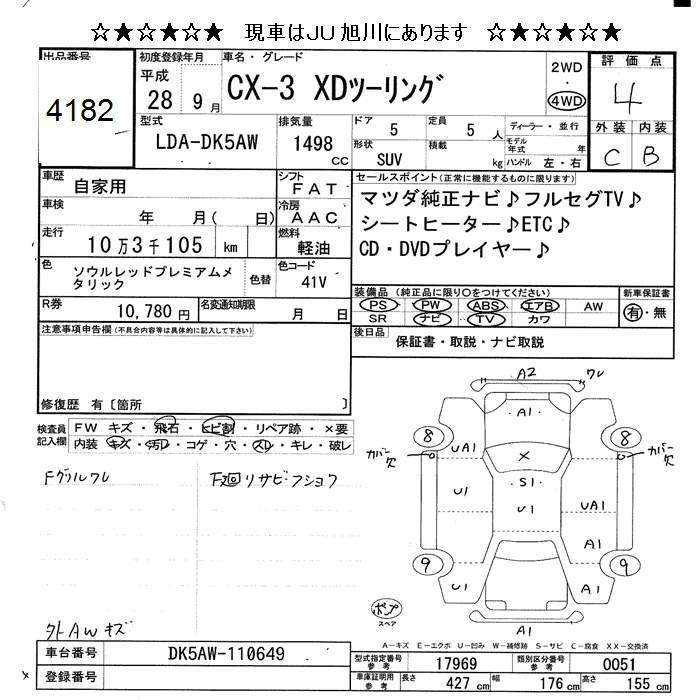 ☆★☆★☆★ 現車はJU旭川にあります ☆★☆★☆★
出品番号 初度登録年月 車名・グレード 評価点
4182
平成 28 9月 CX-3 XDツーリング 2WD 4WD 4
型式 排気量 ドア 5 定員 5 人 ディーラー・並行 外装 内装
LDA-DK5AW 1498 CC 形状 SUV 積載 kg モデル年式 年 ハンドル 左・右 C B
車歴 自家用 シフト FAT セールスポイント(正常に機能するものに限ります)
車検 年 月( 日) 冷房 AAC マツダ純正ナビ♪フルセグTV♪
シートヒーター♪ETC♪
走行 10万3千105 km 燃料 軽油 CD・DVDプレイヤー♪
色 ソウルレッドプレミアムメタリック 色替 色コード 41V
装備品(純正品に限り○をつけてください) 新車保証書
PS PW ABS エアB AW 有・無
SR ナビ TV カワ
R券 10,780円 名変通知期限 月 日
注意事項申告欄(不具合内容等は具体的に記入して下さい) 後日品 保証書・取説・ナビ取説
修復歴 有〔箇所 〕
検査員記入欄 FW キズ・飛石・ヒビ割・リペア跡・×要
内装 キズ・汚レ・コゲ・穴・スレ・キレ・破レ
Fグリルワレ 下廻リサビ・フショク
A2 ワレ
A1
8 8
カバー欠 UA1 × カバー欠
S1
U1 U1 UA1
A1
9 9
U1 A1 A1
ポンプ
スペア
A1
外AWキズ
A-キズ E-エクボ U-凹み W-補修跡 S-サビ C-腐食 XX-交換済
車台番号 DK5AW-110649 型式指定番号 参考 17969 類別区分番号 参考 0051
登録番号 車庫証明用 参考 長さ 427 cm 幅 176 cm 高さ 155 cm